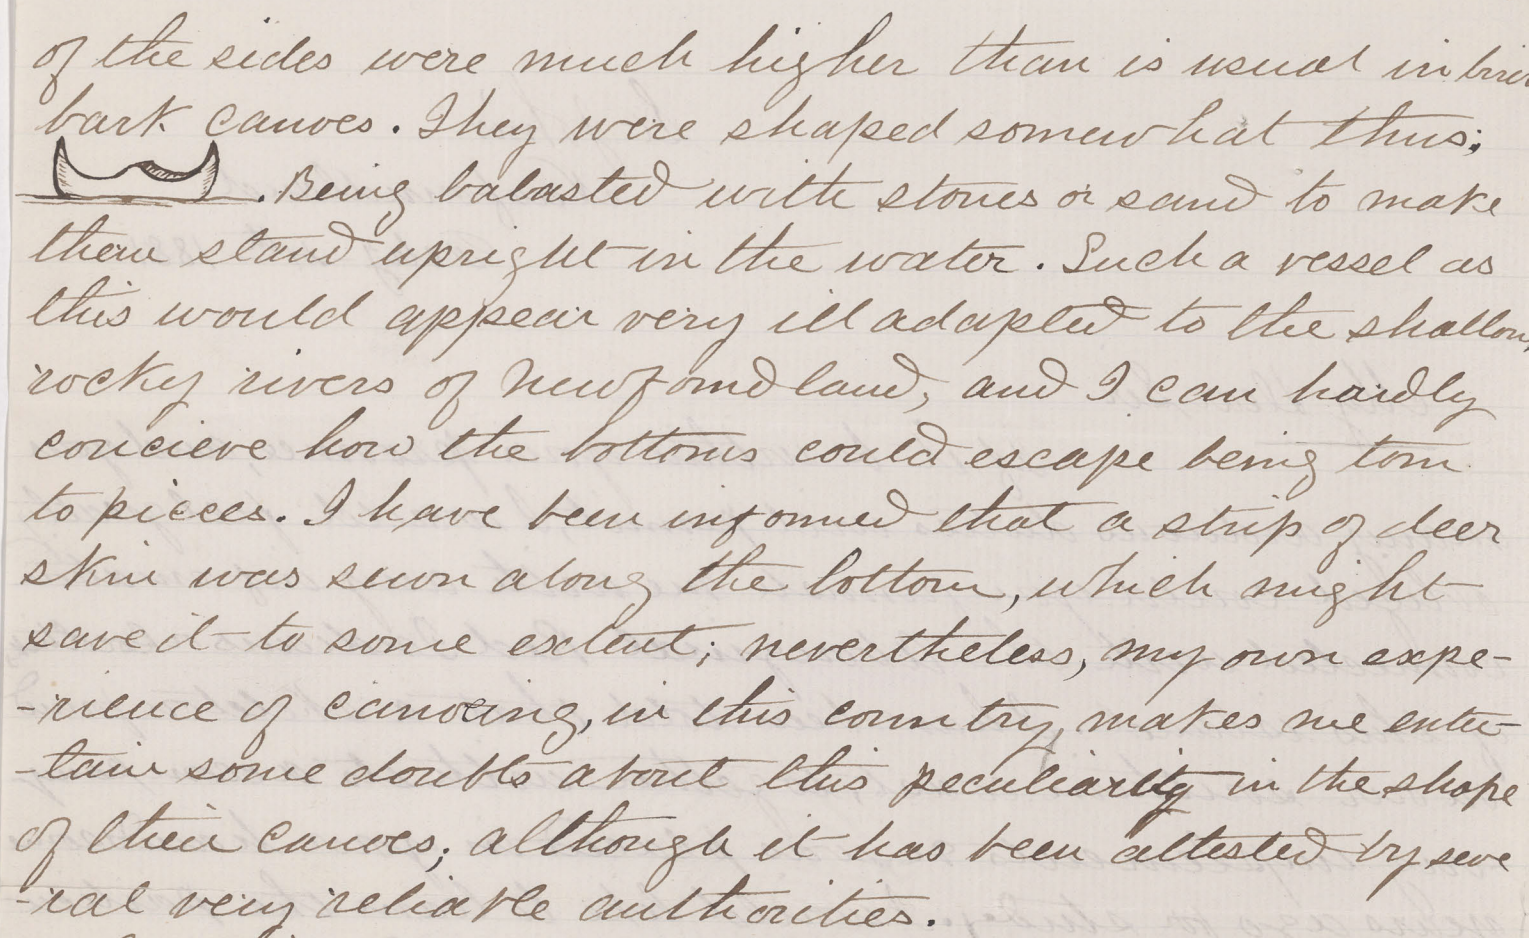 of the sides were much higher than is usual in
bark canoes. They were shaped somewhat thus;
. Being balasted with stones or sand to make
them stand upright in the water. Such a vessel as
this would appear very ill adapted to the shallow,
rocky rivers of Newfoundland, and I can hardly
concieve how the bottoms could escape being torn
to pieces. I have been informed that a strip of deer
skin was sewn along the bottom, which might
save it to some extent; nevertheless, my own expe-
-rience of canoeing, in this country, makes me enter-
-tain some doubts about this peculiarity in the shape
of their canoes; although it has been attested by seve
-ral very reliable authorities.